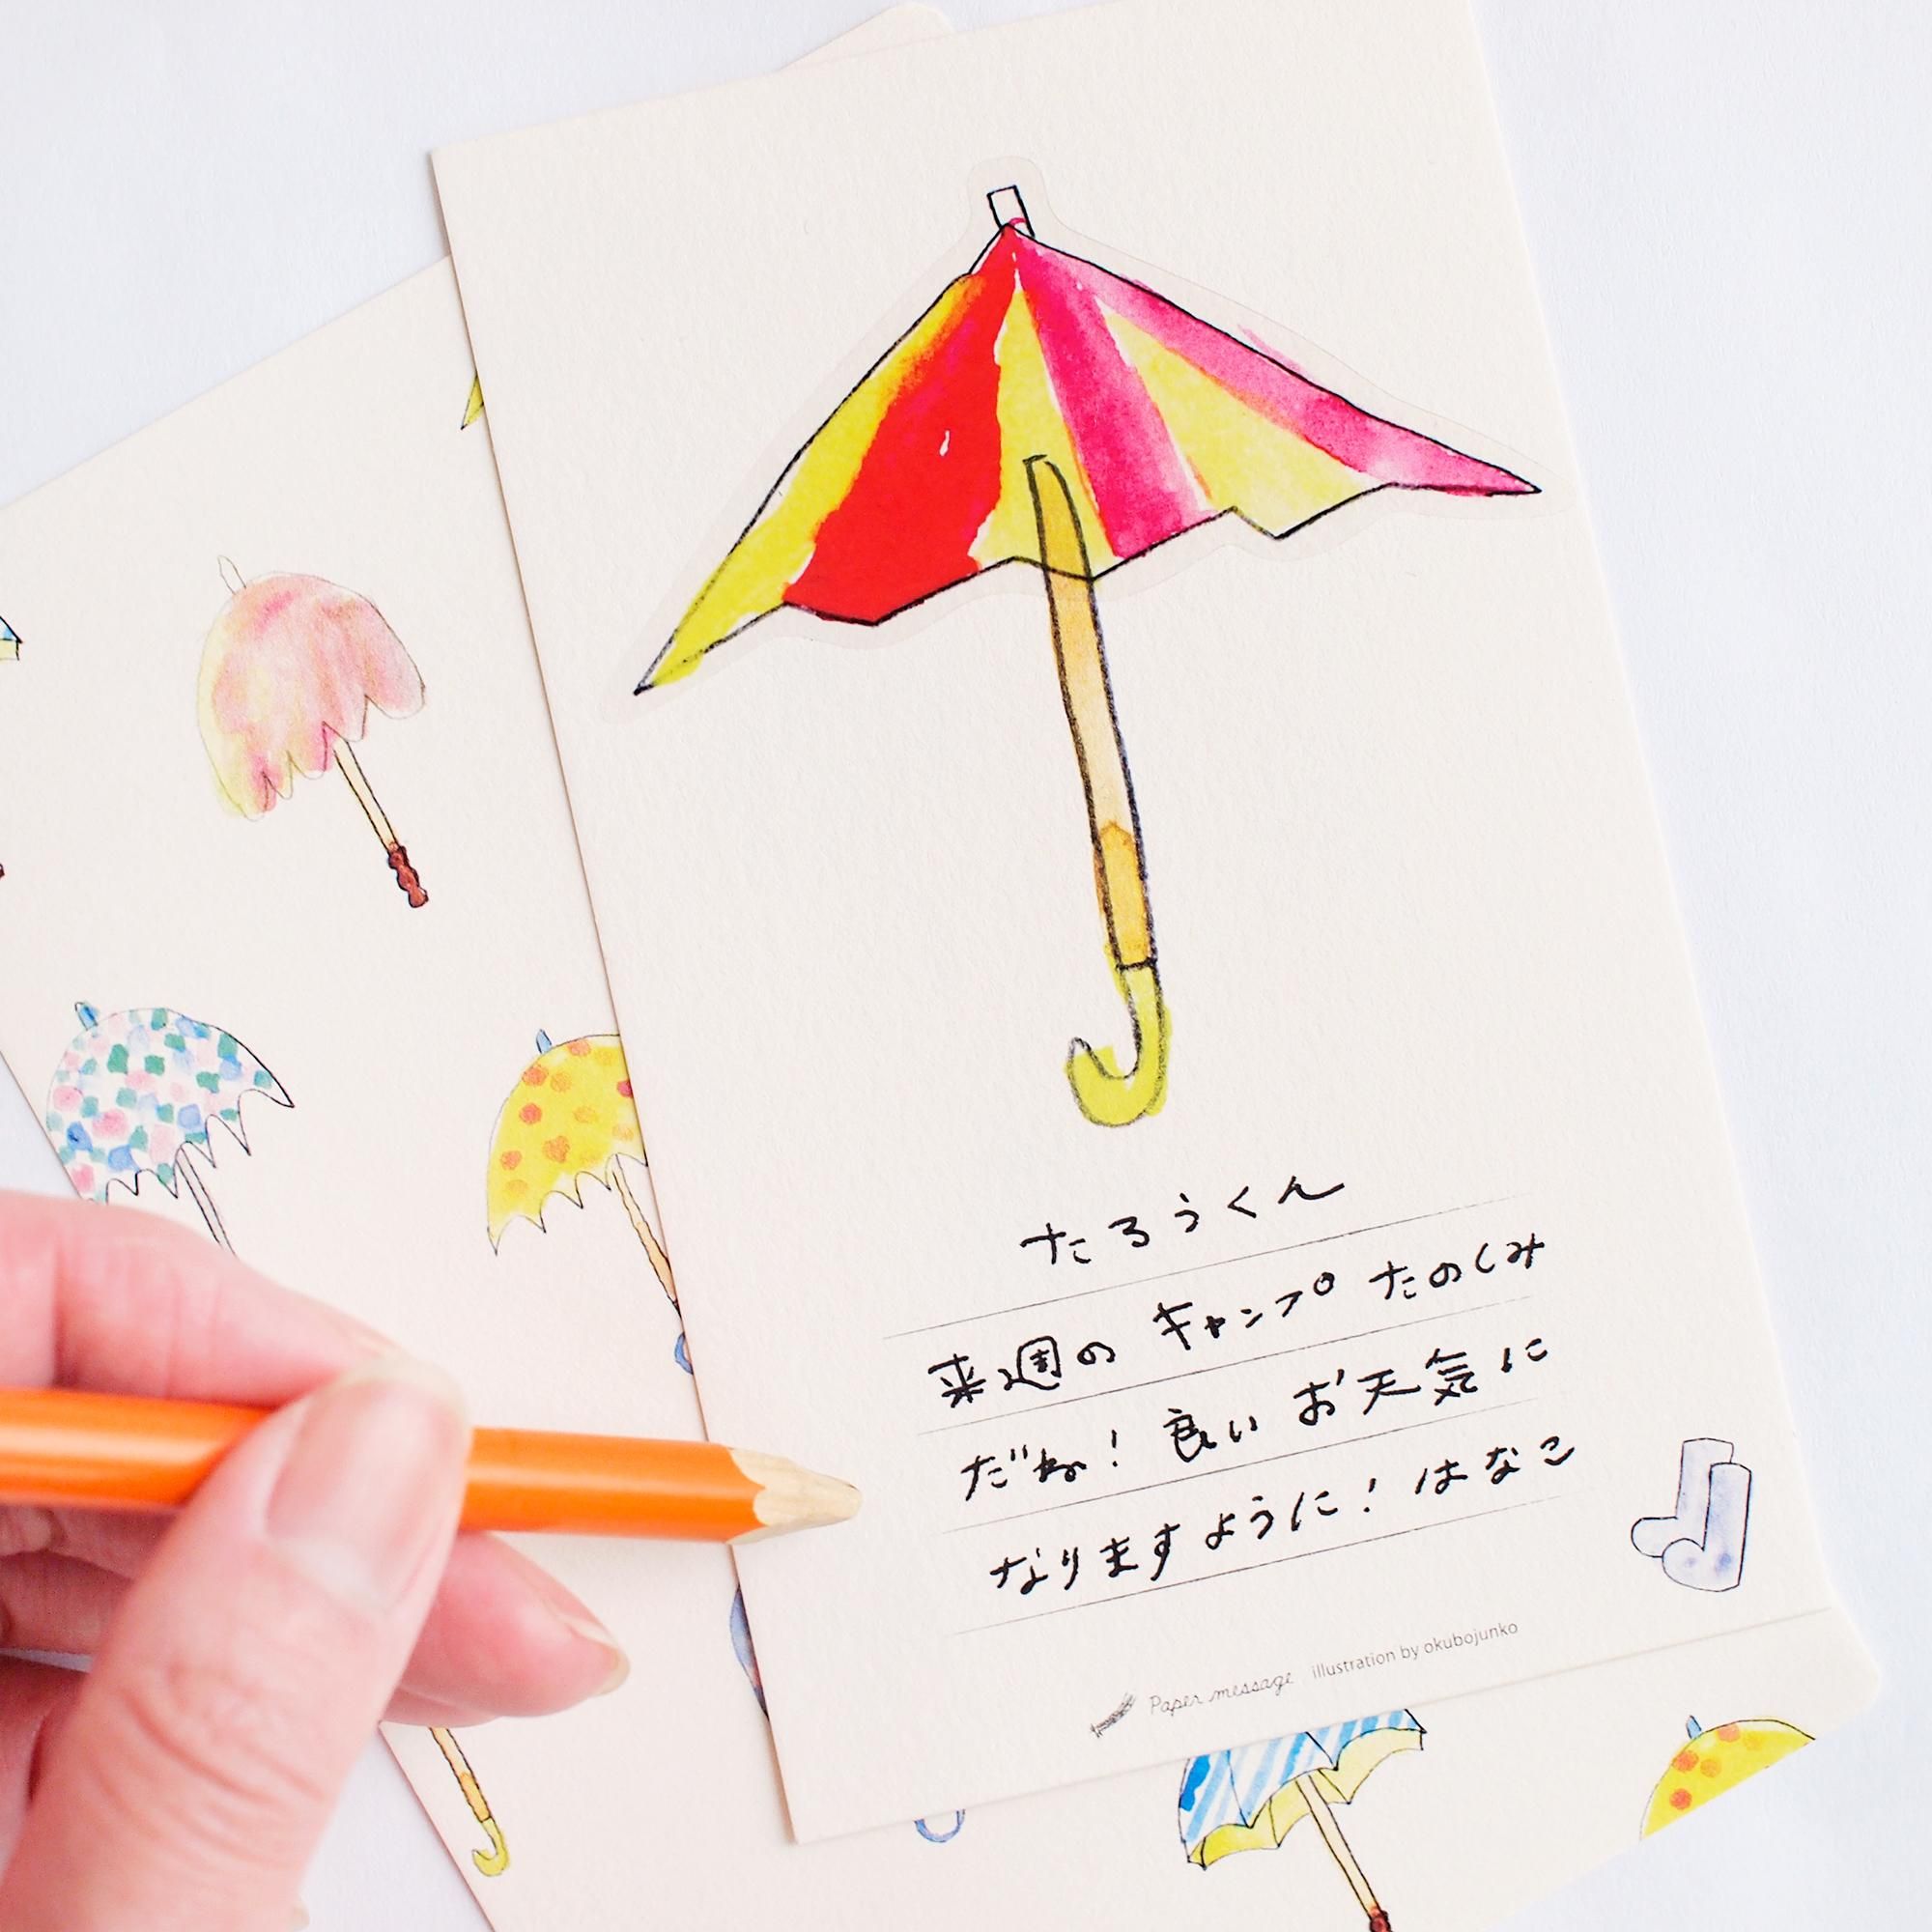 たろうくん
来週の キャンプ たのしみ
だね! 良い お天気に
なりますように! はなこ
Paper message illustration by okubojunko